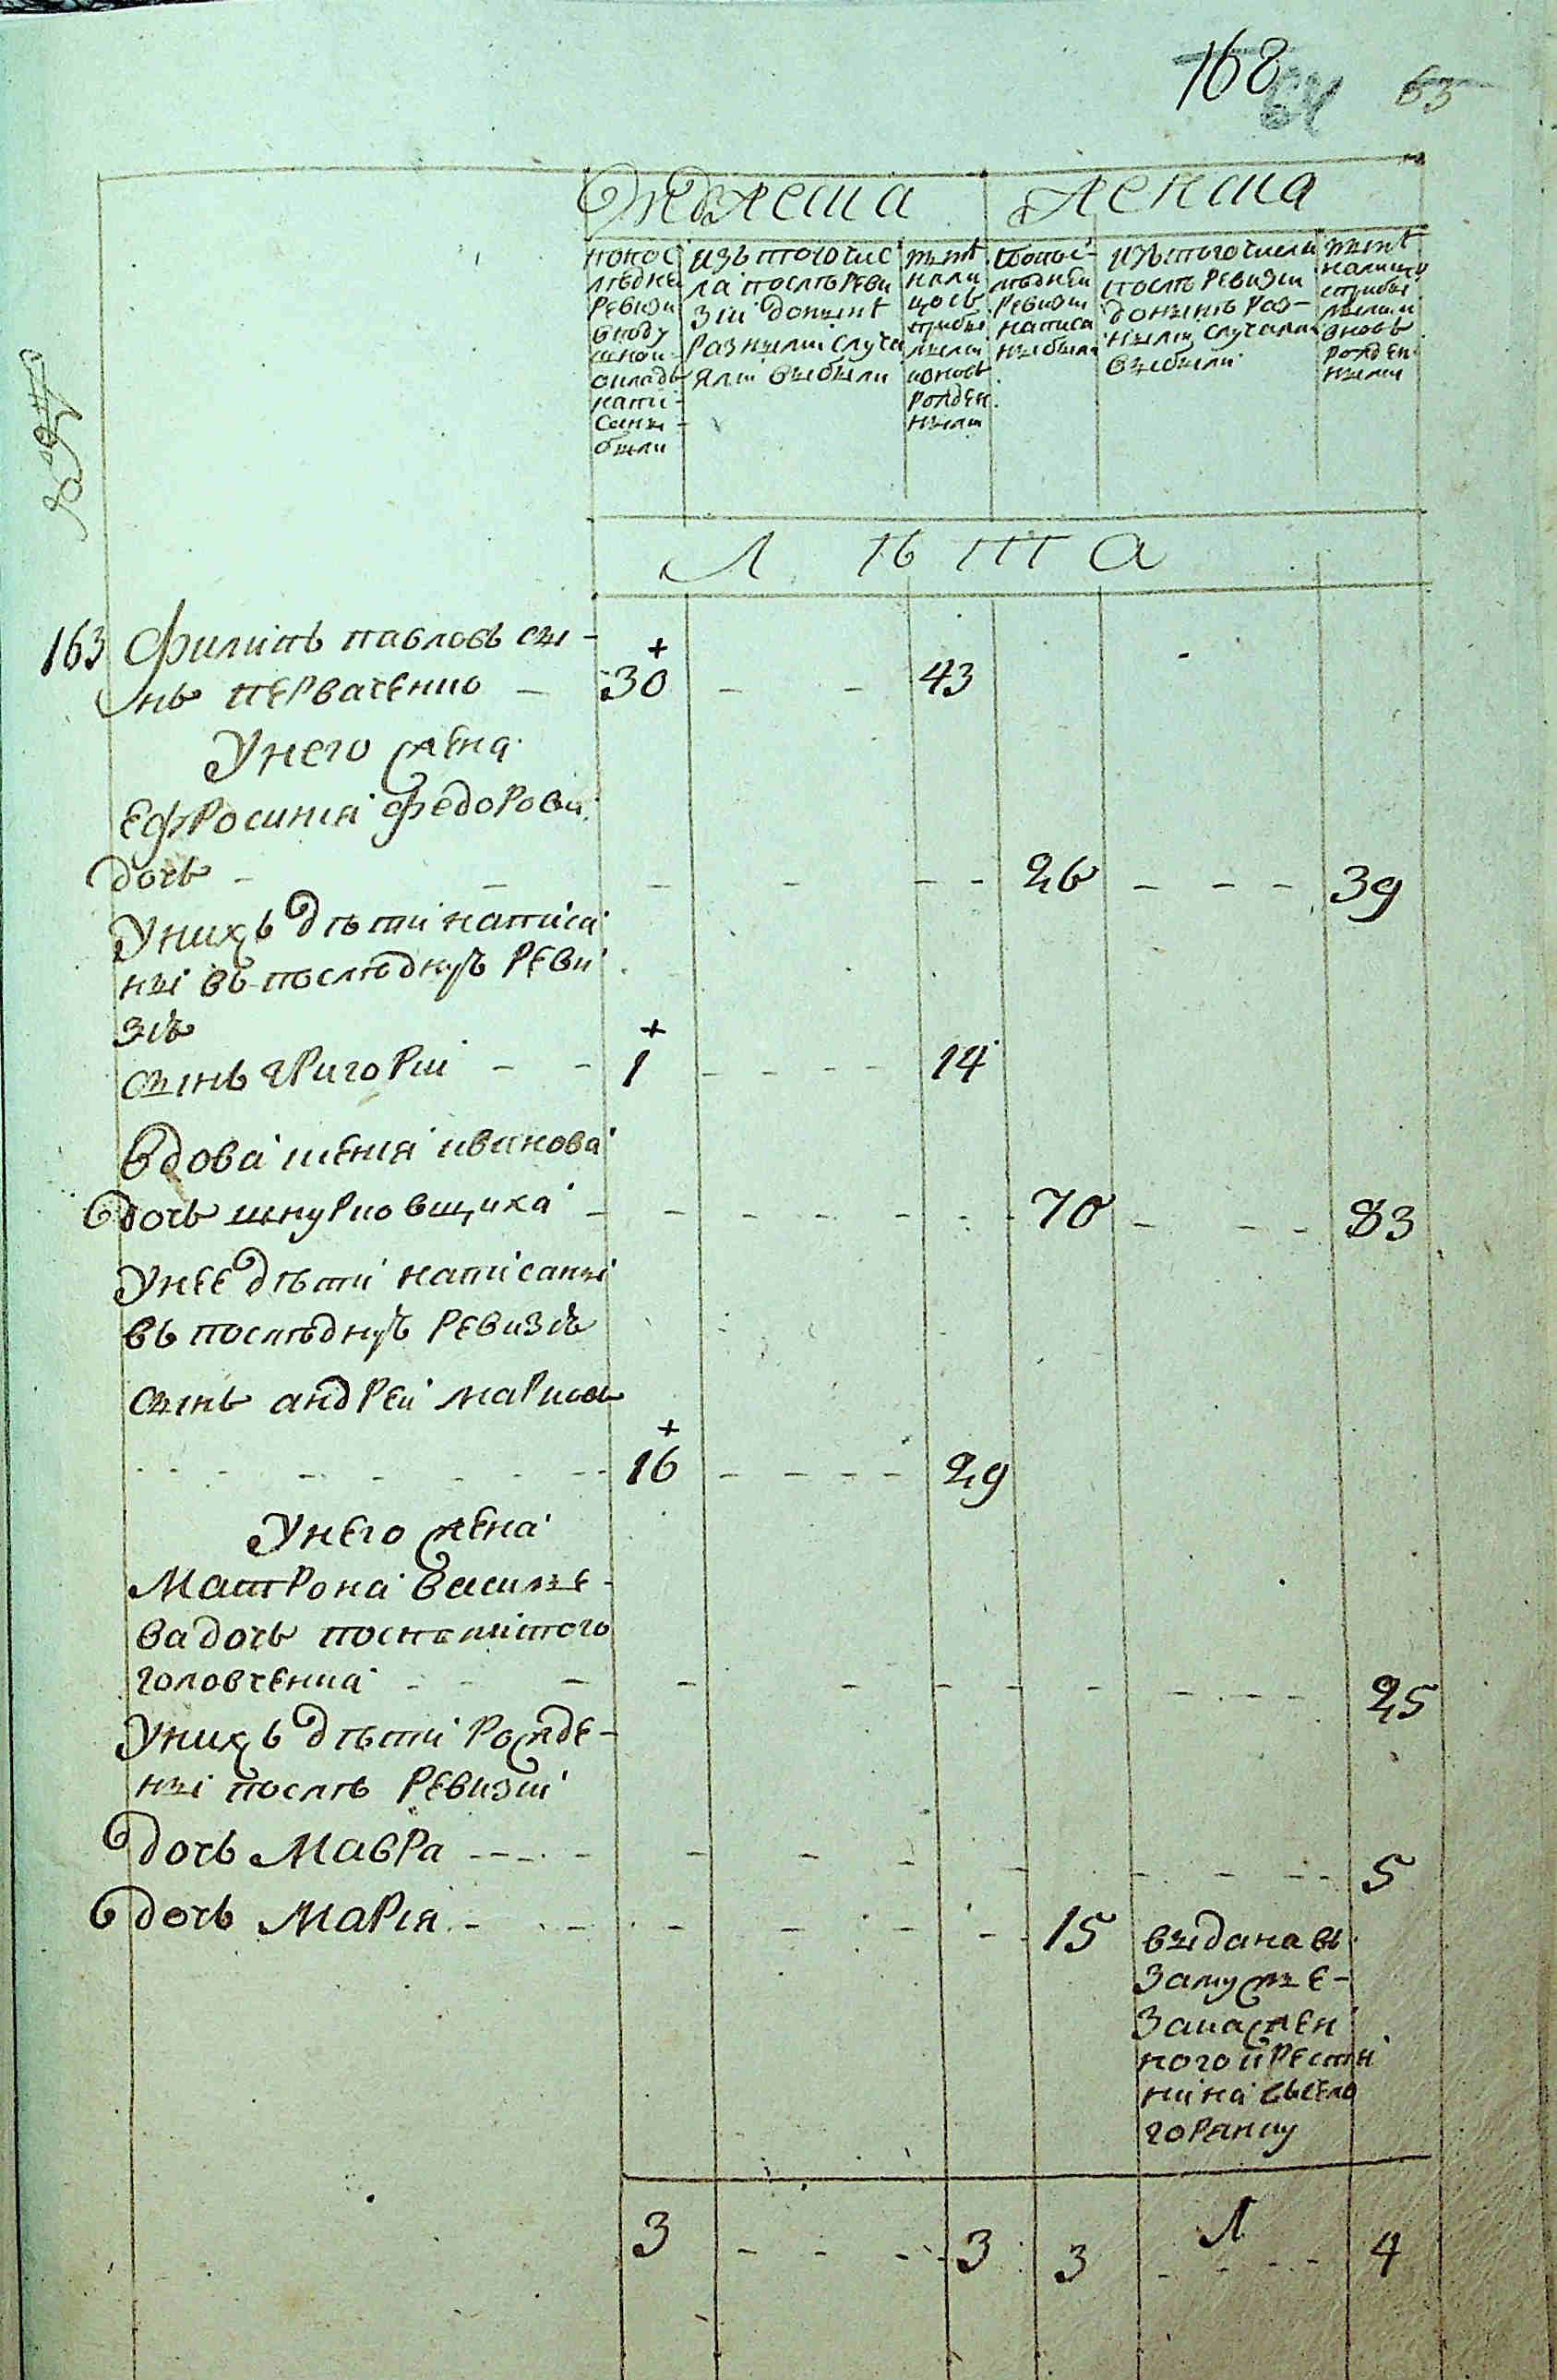 168 64 63
Мужеска Женска
по пос
лѣдне
ревизи
в поду
шной
окладъ
напи-
саны
были
изъ того чис
ла послѣ реви
зіи до нынѣ
разными случа
ями выбыли
нынѣ
нали
цо съ
прибы
лыми
и вновь
рожден
ными
по пос-
лѣдней
ревизіи
написа
ны были
изъ того числа
послѣ ревизіи
до нынѣ раз-
ными случаями
выбыли
нынѣ
налицо
с прибы
лыми и
вновь
рожден
ными
Лѣта
163 Филипъ павловъ сы-
нъ первачепко 30 43
У него жена
Ефросинія федорова
дочь 26 39
У нихъ дѣти написа
ны въ послѣднуѣ реви
зіѣ
сынъ григоріи 1 14
Вдова ксенія иванова
дочь шнурковщиха 70 83
У нее дѣти написаны
въ послѣднуѣ ревизіѣ
сынъ андреи марковъ
16 29
У него жена
Матрона василье-
ва дочь посполитого
головченка 25
У нихъ дѣти рожде-
ны послѣ ревизіи
дочь Мавра 5
дочь Марія 15 выдана въ
замужье
за казен
ного крестя
нина въ село
горянку
3 3 3 1 4